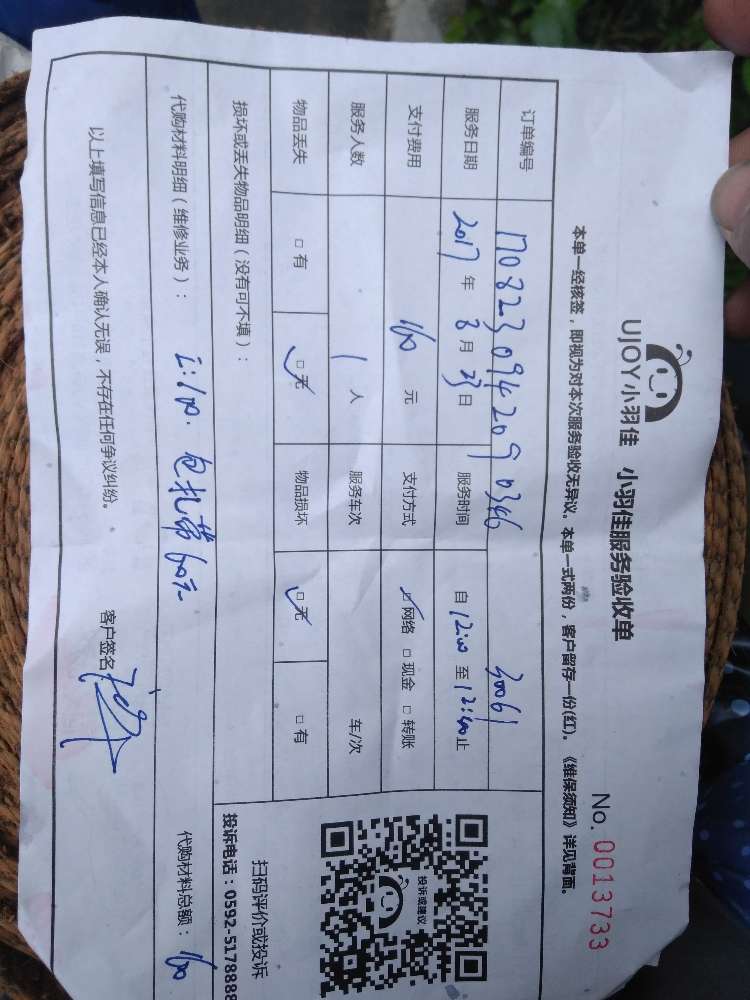 UJOY小羽佳 小羽佳服务验收单
No. 0013733
本单一经核签，即视为对本次服务验收无异议。本单一式两份，客户留存一份(红)。《维保须知》详见背面。
订单编号 170823094209 0346 30061
服务日期 2017 年 8 月 23 日 服务时间 自 12:00 至 12:40 止
支付费用 160 元 支付方式 ☑ 网络 □ 现金 □ 转账
服务人数 1 人 服务车次 车/次
物品丢失 □ 有 ☑ 无 物品损坏 ☑ 无 □ 有
损坏或丢失物品明细（没有可不填）：
投诉或建议
扫码评价或投诉
投诉电话：0592-5178888
代购材料明细（维修业务）： 包扎带60元 代购材料总额：160
以上填写信息已经本人确认无误，不存在任何争议纠纷。
客户签名